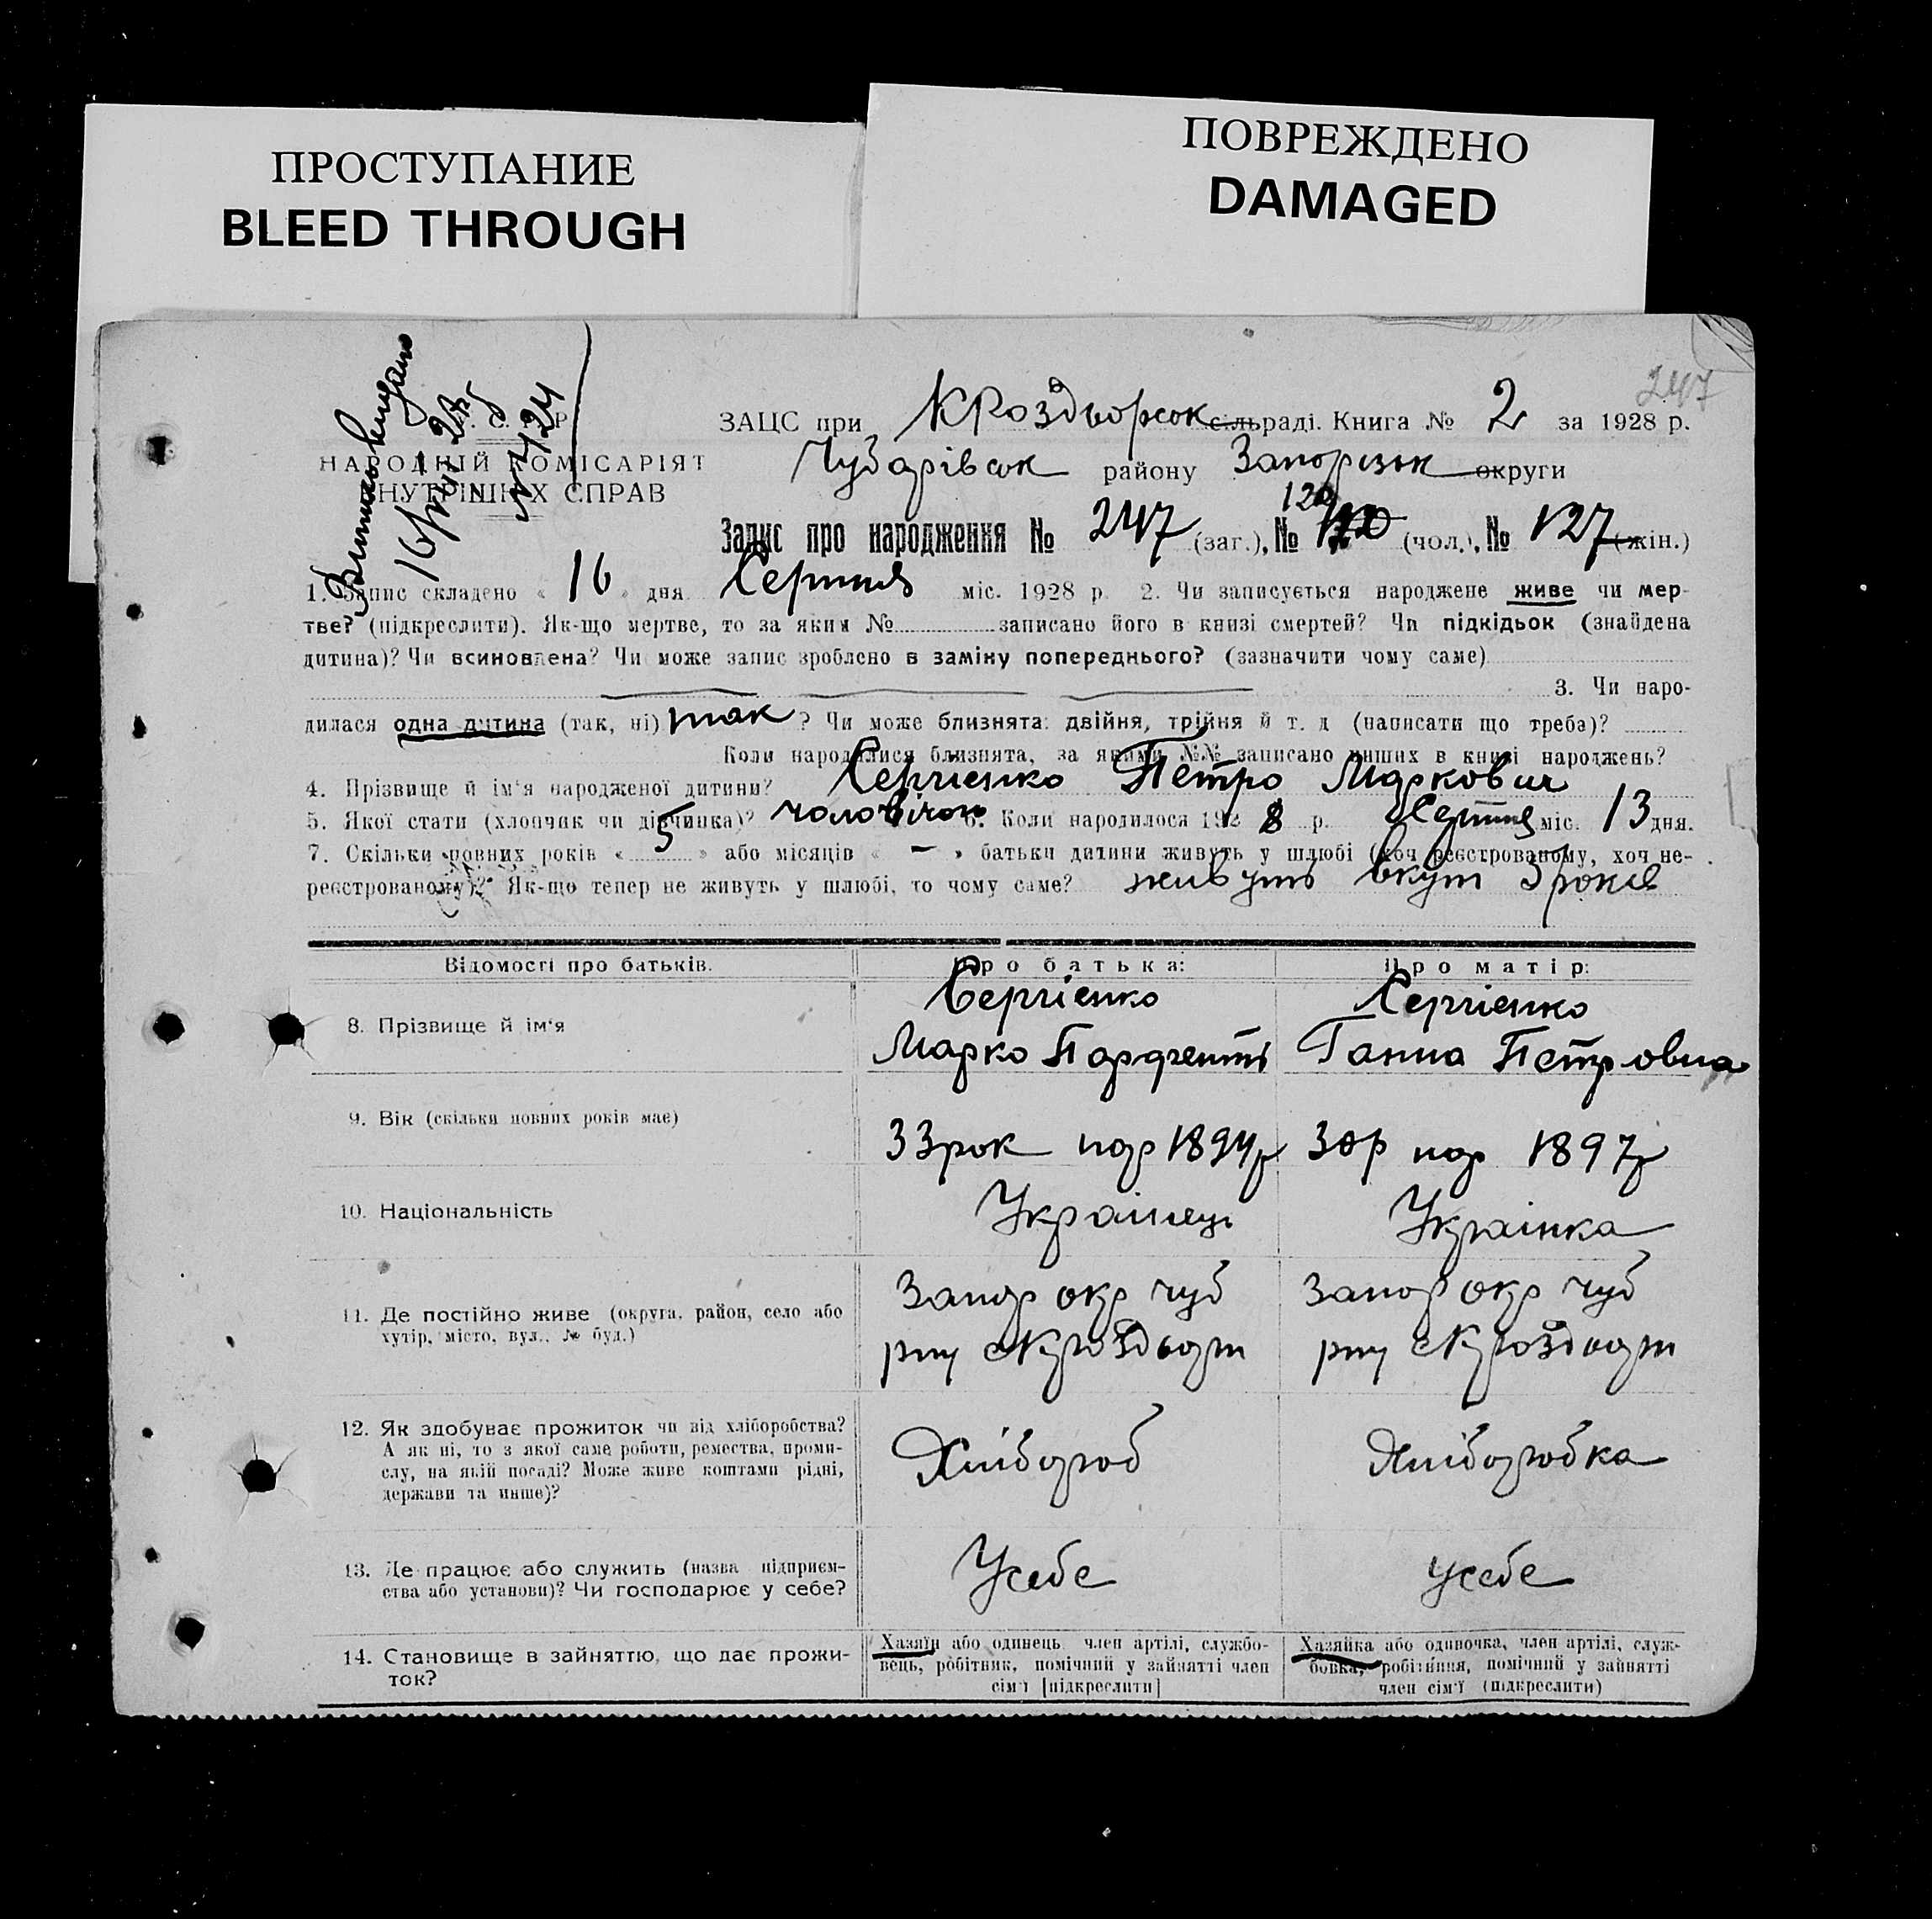 ПРОСТУПАНИЕ
BLEED THROUGH
ПОВРЕЖДЕНО
DAMAGED
247
ЗАЦС при КРоздорськ сільраді. Книга № 2 за 1928 р.
НАРОДНІЙ КОМІСАРІЯТ
ВНУТРІШНІХ СПРАВ
Чубарівськ району Запорізьк округи
№ 424
Запис про народження № 247 (заг.), № 120 (чол.), № 127 (жін.)
1. Запис складено « 16 » дня Серпня міс. 1928 р. 2. Чи записується народжене живе чи мер-
тве? (підкреслити). Як-що мертве, то за яким № записано його в книзі смертей? Чи підкідьок (знайдена
дитина)? Чи всиновлена? Чи може запис зроблено в заміну попереднього? (зазначити чому саме)
3. Чи наро-
дилася одна дитина (так, ні) так ? Чи може близнята: двійня, трійня й т. д (написати що треба)?
Коли народилися близнята, за якими №№ записано инших в книзі народжень?
4. Прізвище й ім'я народженої дитини? Сергієнко Петро Маркович
5. Якої стати (хлопчик чи дівчинка)? чоловічої 6. Коли народилося 192 8 р. Серпня міс. 13 дня.
7. Скільки повних років « 5 » або місяців « — » батьки дитини живуть у шлюбі (хоч реєстрованому, хоч не-
реєстрованому)? Як-що тепер не живуть у шлюбі, то чому саме? живуть вкупі 5 років
Відомості про батьків.
Про батька:
Про матір:
8. Прізвище й ім'я
Сергієнко
Марко Парфенті
Сергієнко
Ганна Петровна
9. Вік (скільки повних років має)
33 рок нар 1894 р
30 р нар 1897 р
10. Національність
Українець
Українка
11. Де постійно живе (округа, район, село або
хутір, місто, вул., № буд.)
Запор окр чуб
рну с Кроздори
Запор окр чуб
рну с Кроздори
12. Як здобуває прожиток чи від хліборобства?
А як ні, то з якої саме роботи, ремества, проми-
слу, на якій посаді? Може живе коштами рідні,
держави та инше)?
Хлібороб
Хліборобка
13. Де працює або служить (назва підприєм-
ства або установи)? Чи господарює у себе?
Усебе
усебе
14. Становище в зайняттю, що дає прожи-
ток?
Хазяїн або одинець член артілі, службо-
вець, робітник, помічний у зайнятті член
сім'ї [підкреслити]
Хазяйка або одиночка, член артілі, служ-
бовка, робітниця, помічний у зайнятті
член сім'ї (підкреслити)